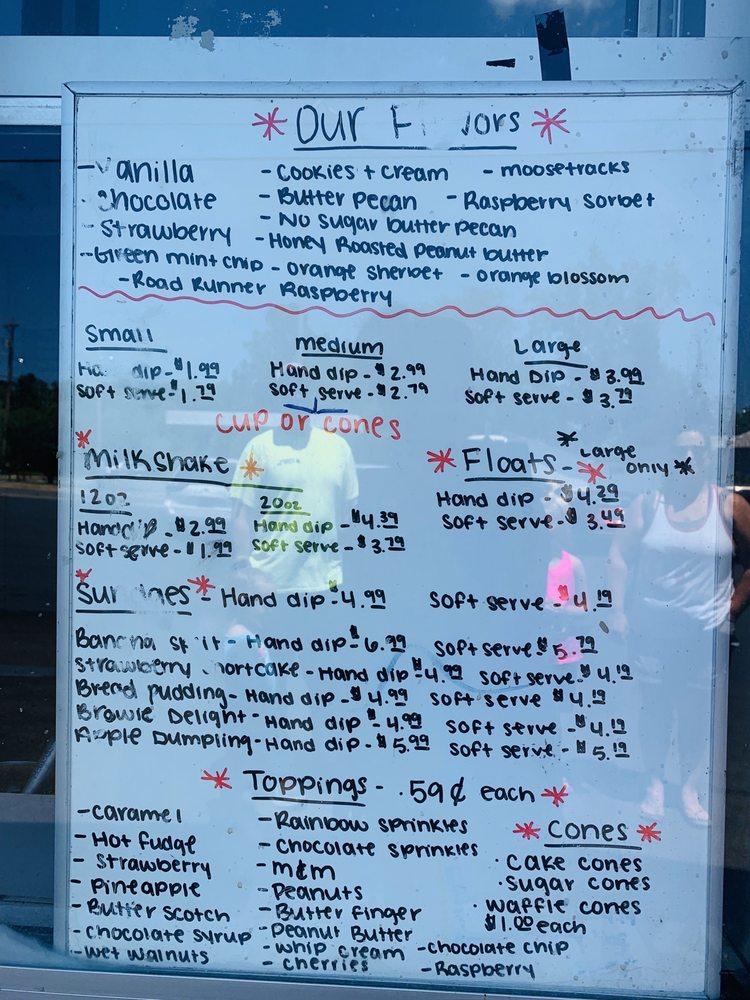 * Our F  vors *
- Vanilla - Cookies + Cream - moosetracks
Chocolate - Butter Pecan - Raspberry Sorbet
- Strawberry - No Sugar butter pecan
- Honey Roasted Peanut butter
- Green mint chip - orange sherbet - orange blossom
- Road Runner Raspberry
Small medium Large
Ha  dip - $1.99 Hand dip - $2.99 Hand Dip - $3.99
Soft serve - $1.79 Soft serve - $2.79 Soft serve - $3.79
cup or cones
* Milkshake * * Floats - * * Large only *
12oz 20oz Hand dip - $4.29
Hand dip - $2.99 Hand dip - $4.39 Soft serve - $3.49
Soft serve - $1.99 Soft serve - $3.79
* Sundaes * - Hand dip - $4.99 Soft serve - $4.19
Banana split - Hand dip - $6.99 Soft serve $5.79
Strawberry hortcake - Hand dip - $4.99 Soft serve $4.19
Bread pudding - Hand dip - $4.99 Soft serve $4.19
Browie Delight - Hand dip $ - 4.99 Soft serve - $4.19
Apple Dumpling - Hand dip - $5.99 Soft serve - $5.19
* Toppings - .59¢ each *
- caramel - Rainbow sprinkles * Cones *
- Hot fudge - Chocolate sprinkles · Cake cones
- Strawberry - m&m · Sugar cones
- Pineapple - Peanuts · waffle cones
- Butter Scotch - Butter finger $1.00 each
- Chocolate syrup - Peanut Butter
- wet walnuts - whip cream - chocolate chip
- cherries - Raspberry